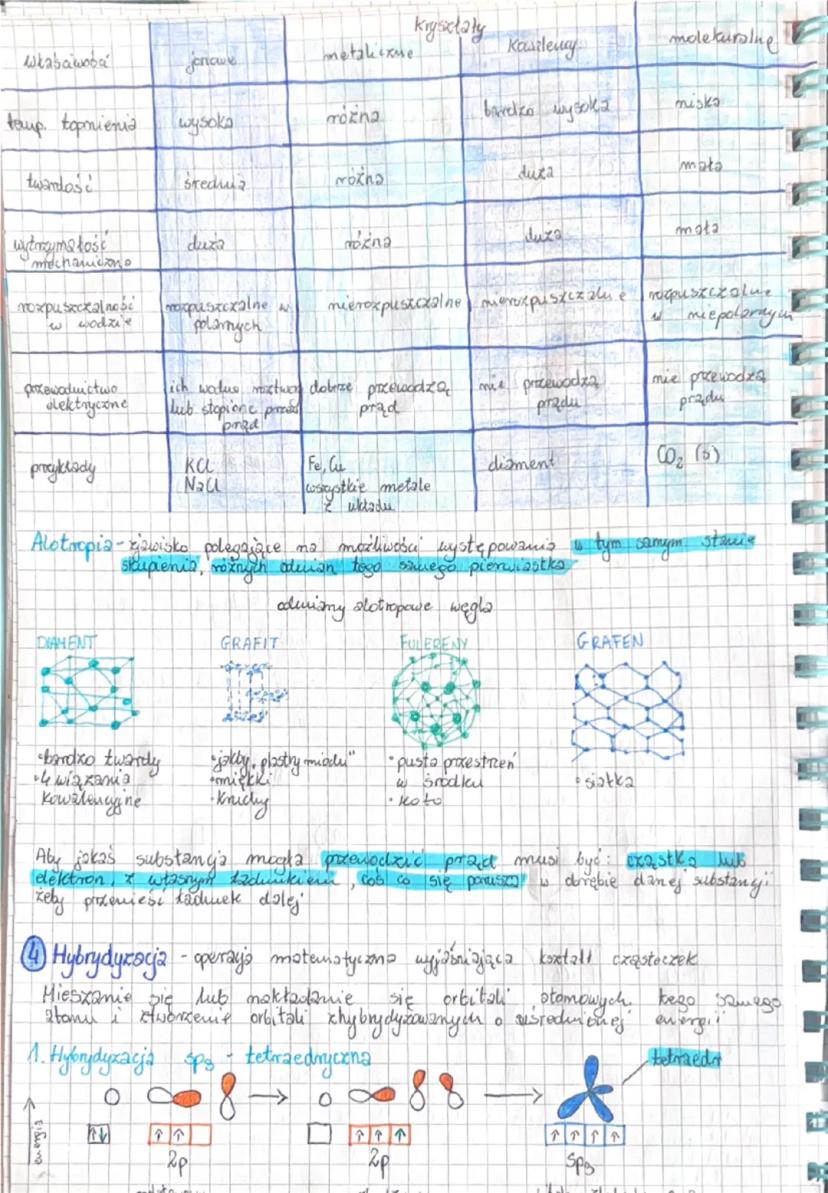 kryształy
właściwości jonowe metaliczne kowalency. molekuralne
temp. topnienia wysoka różna bardzo wysoka niska
twardość średnia różna duża mała
wytrzymałość mechaniczna duża różna duża mała
rozpuszczalność w wodzie rozpuszczalne w polarnych nierozpuszczalne nierozpuszczalne rozpuszczalne w niepolarnych
przewodnictwo elektryczne ich wodne roztwory lub stopione przew prąd dobrze przewodzą prąd nie przewodzą prądu nie przewodzą prądu
przykłady KCl NaCl Fe, Cu wszystkie metale z układu diament CO₂ (s)
Alotropia - zjawisko polegające na możliwości występowania w tym samym stanie
skupienia, różnych odmian tego samego pierwiastka
odmiany alotropowe węgla
DIAMENT GRAFIT FULERENY GRAFEN
• bardzo twardy
• 4 wiązania
kowalencyjne
• jakby „plastry miodu"
• miękki
• kruchy
• pusta przestrzeń
w środku
• koło
• siatka
Aby jakaś substancja mogła przewodzić prąd musi być: cząstka lub
elektron, z własnym ładunkiem, coś co się porusza w obrębie danej substancji
żeby przenieść ładunek dalej
4 Hybrydyzacja - operacja matematyczna wyjaśniająca kształt cząsteczek
Mieszanie się lub nakładanie się orbitali atomowych tego samego
atomu i stworzenie orbitali zhybrydyzowanych o uśrednionej energii
1. Hybrydyzacja sp₃ - tetraedryczna
tetraedr
2p 2p sp₃